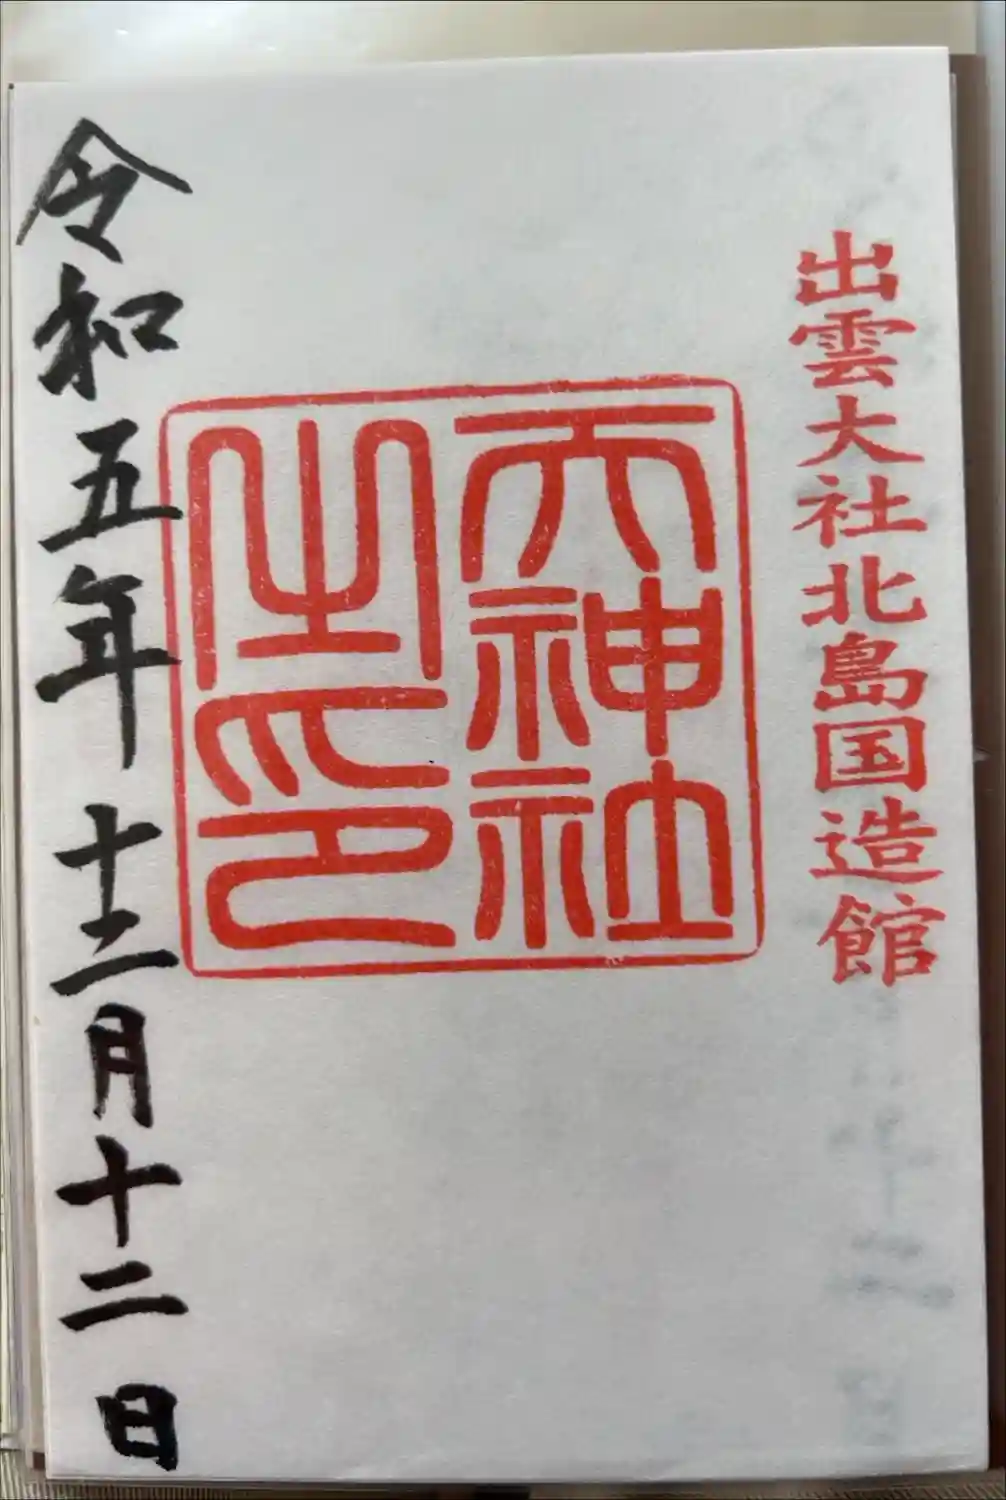 出雲大社北島国造館
天神社
之印
令和五年十二月十二日